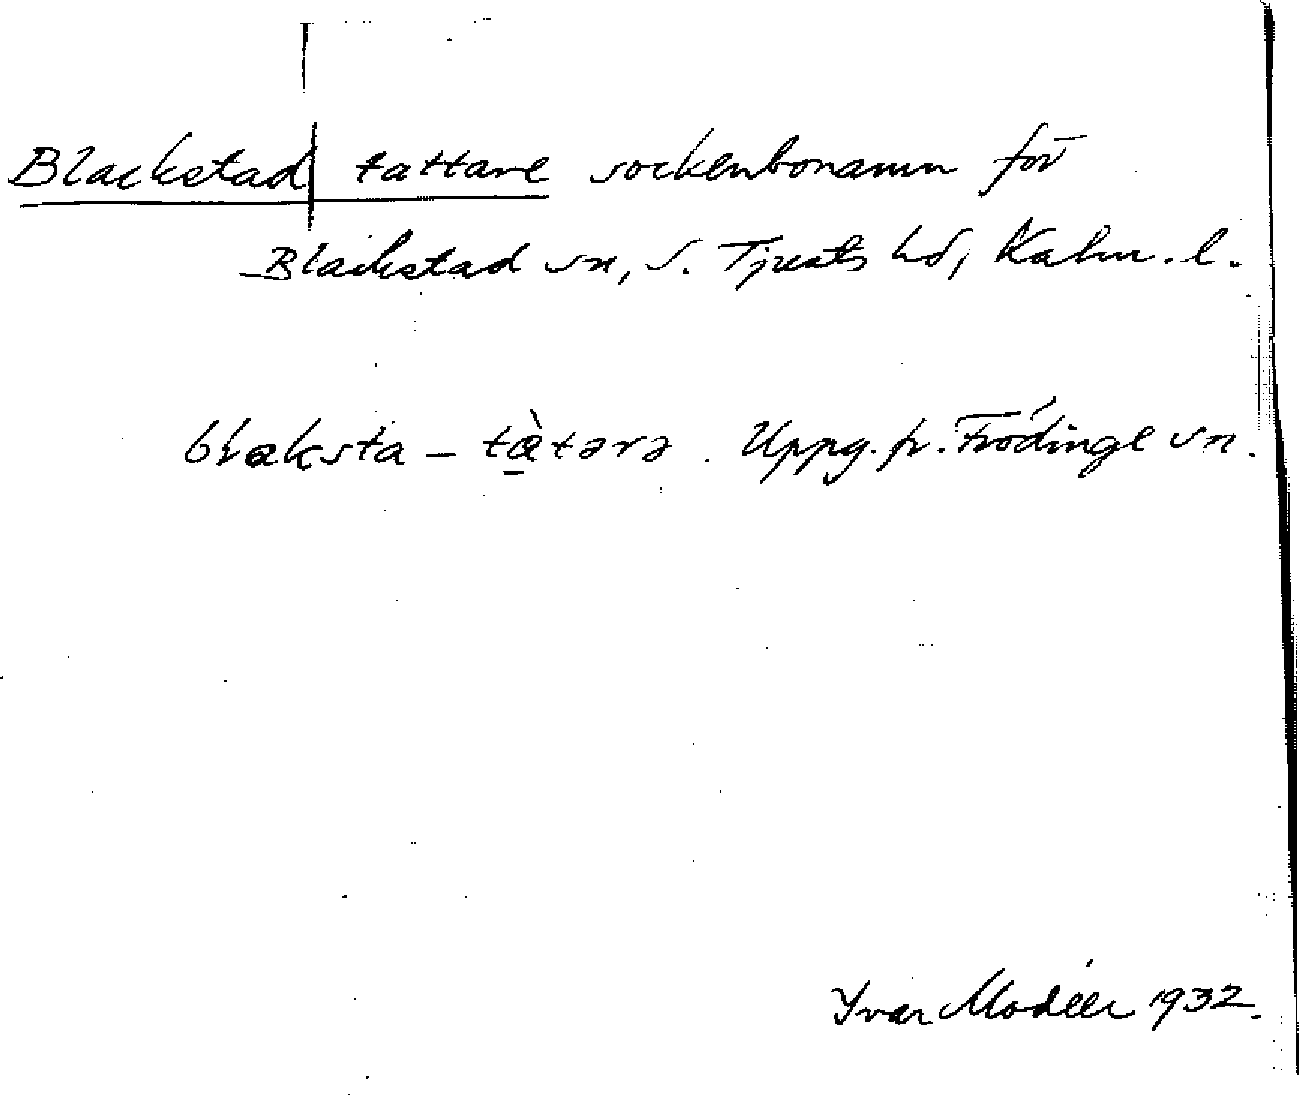 Blackstad| tattare sockenbonamn för
Blackstad sn, S. Tjusts hd, Kalm. l.
blaksta – tàtərə. Uppg. fr. Frödinge sn.
Yvar Modéer 1932.